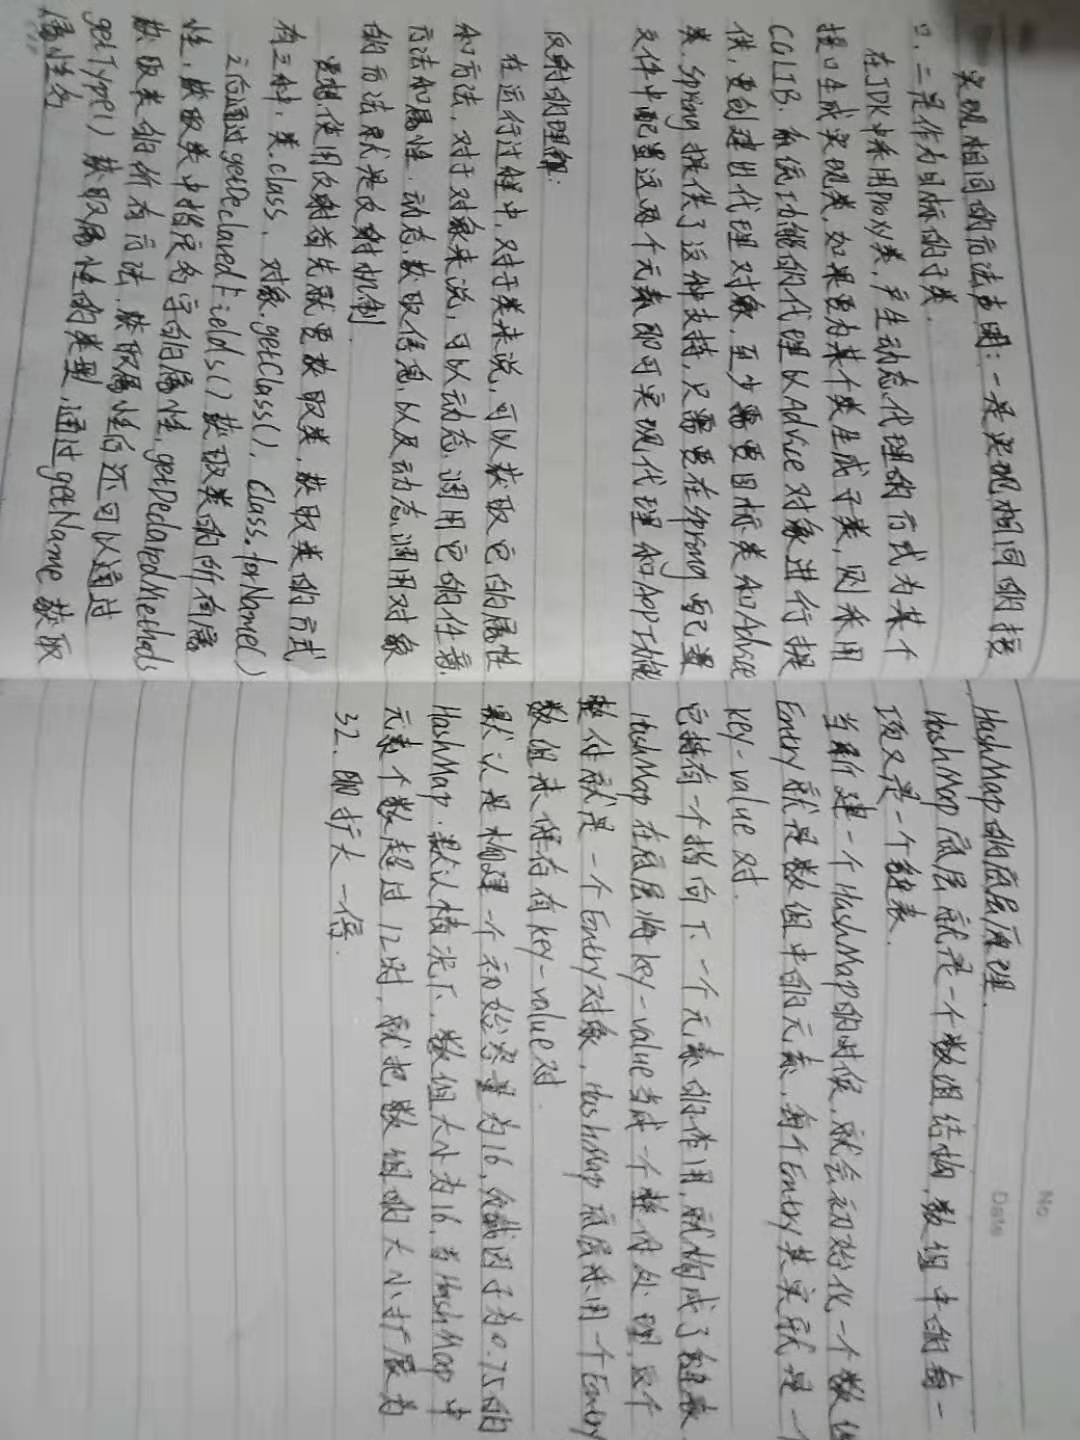 实现相同的方法声明：一是实现相同的接
口，二是作为目标的子类．
在JDK中采用Proxy类，产生动态代理的方式为某个
接口生成实现类，如果要为某个类生成子类，则采用
CGLIB．系统功能的代理以Advice对象进行提
供，要创建出代理对象，至少需要目标类和Advice
类．spring提供了这种支持，只需要在spring的配置
文件中配置这两个元素即可实现代理和AOP功能
反射的理解：
在运行过程中，对于类来说，可以获取它的属性
和方法．对于对象来说，可以动态调用它的任意
方法和属性．动态获取信息以及动态调用对象
的方法就是反射机制
要想使用反射首先就要获取类，获取类的方式
有三种：类.class、对象.getClass()、Class.forName()
之后通过getDeclaredFields()获取类的所有属
性，获取类中指定的字段属性，getDeclaredMethods
获取类的所有方法．获取属性后还可以通过
getType()获取属性的类型，通过getName获取
属性名
No.
Date
HashMap的底层原理．
HashMap底层就是一个数组结构，数组中的每一
项又是一个链表．
当新建一个HashMap的时候，就会初始化一个数组
Entry就是数组中的元素，每个Entry其实就是一个
key-value对．
它持有一个指向下一个元素的作用，就构成了链表
HashMap在底层将key-value当成一个整体处理，这个
整体就是一个Entry对象，HashMap底层采用一个Entry
数组来保存有key-value对．
默认是构建一个初始容量为16，负载因子为0.75的
HashMap．默认情况下，数组大小为16，当HashMap中
元素个数超过12时，就把数组的大小扩展为
32，即扩大一倍．